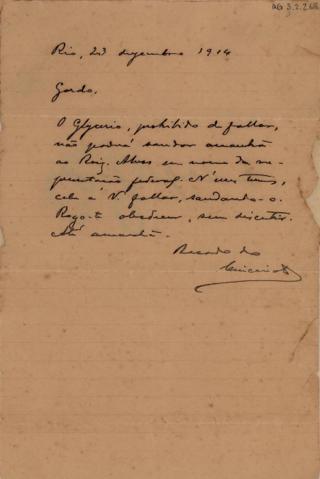 AG 3.2.268
Rio, 23 dezembro 1914
Gordo,
O Glycerio, prohibido de fallar,
não poderá saudar amanhã
ao Roiz. Alves em nome da re-
presentação federal. N'esses termos,
cabe a V. fallar, saudando-o.
Rogo-te obedecer, sem discutir.
Até amanhã.
Recado do